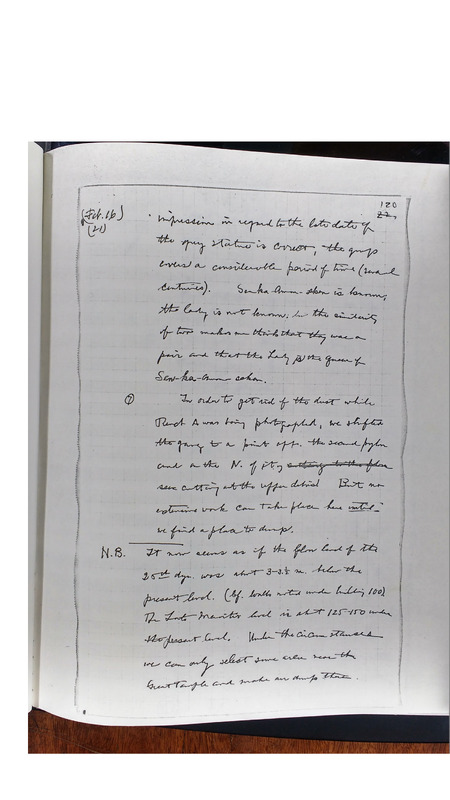 120
(Feb. 16)
(21)
impression in regard to the late date of
the grey statues is correct, the group
covers a considerable period of time (several
centuries). Senka-Amn-seken is known,
the lady is not known, but the similarity
of two makes me think that they were a
pair and that the Lady is the queen of
Sen-ka-amn-seken.
In order to get rid of the dust while
was being photographed, we shifted
the gang to a point opp. the second pylon
and on the N. of it, cutting to the floor
cutting at the upper debris. But no
extensive work can take place here until
we find a place to dump.
N.B. It now seems as if the floor level of the
25th dyn. was abt 3-3.5 m. below the
present level. (cf. walls noted under building 100)
The Late Meroitic level is abt 125-150 under
the present level. Under the circumstances
we can only select some area near the
Great Temple and make our dumps there.